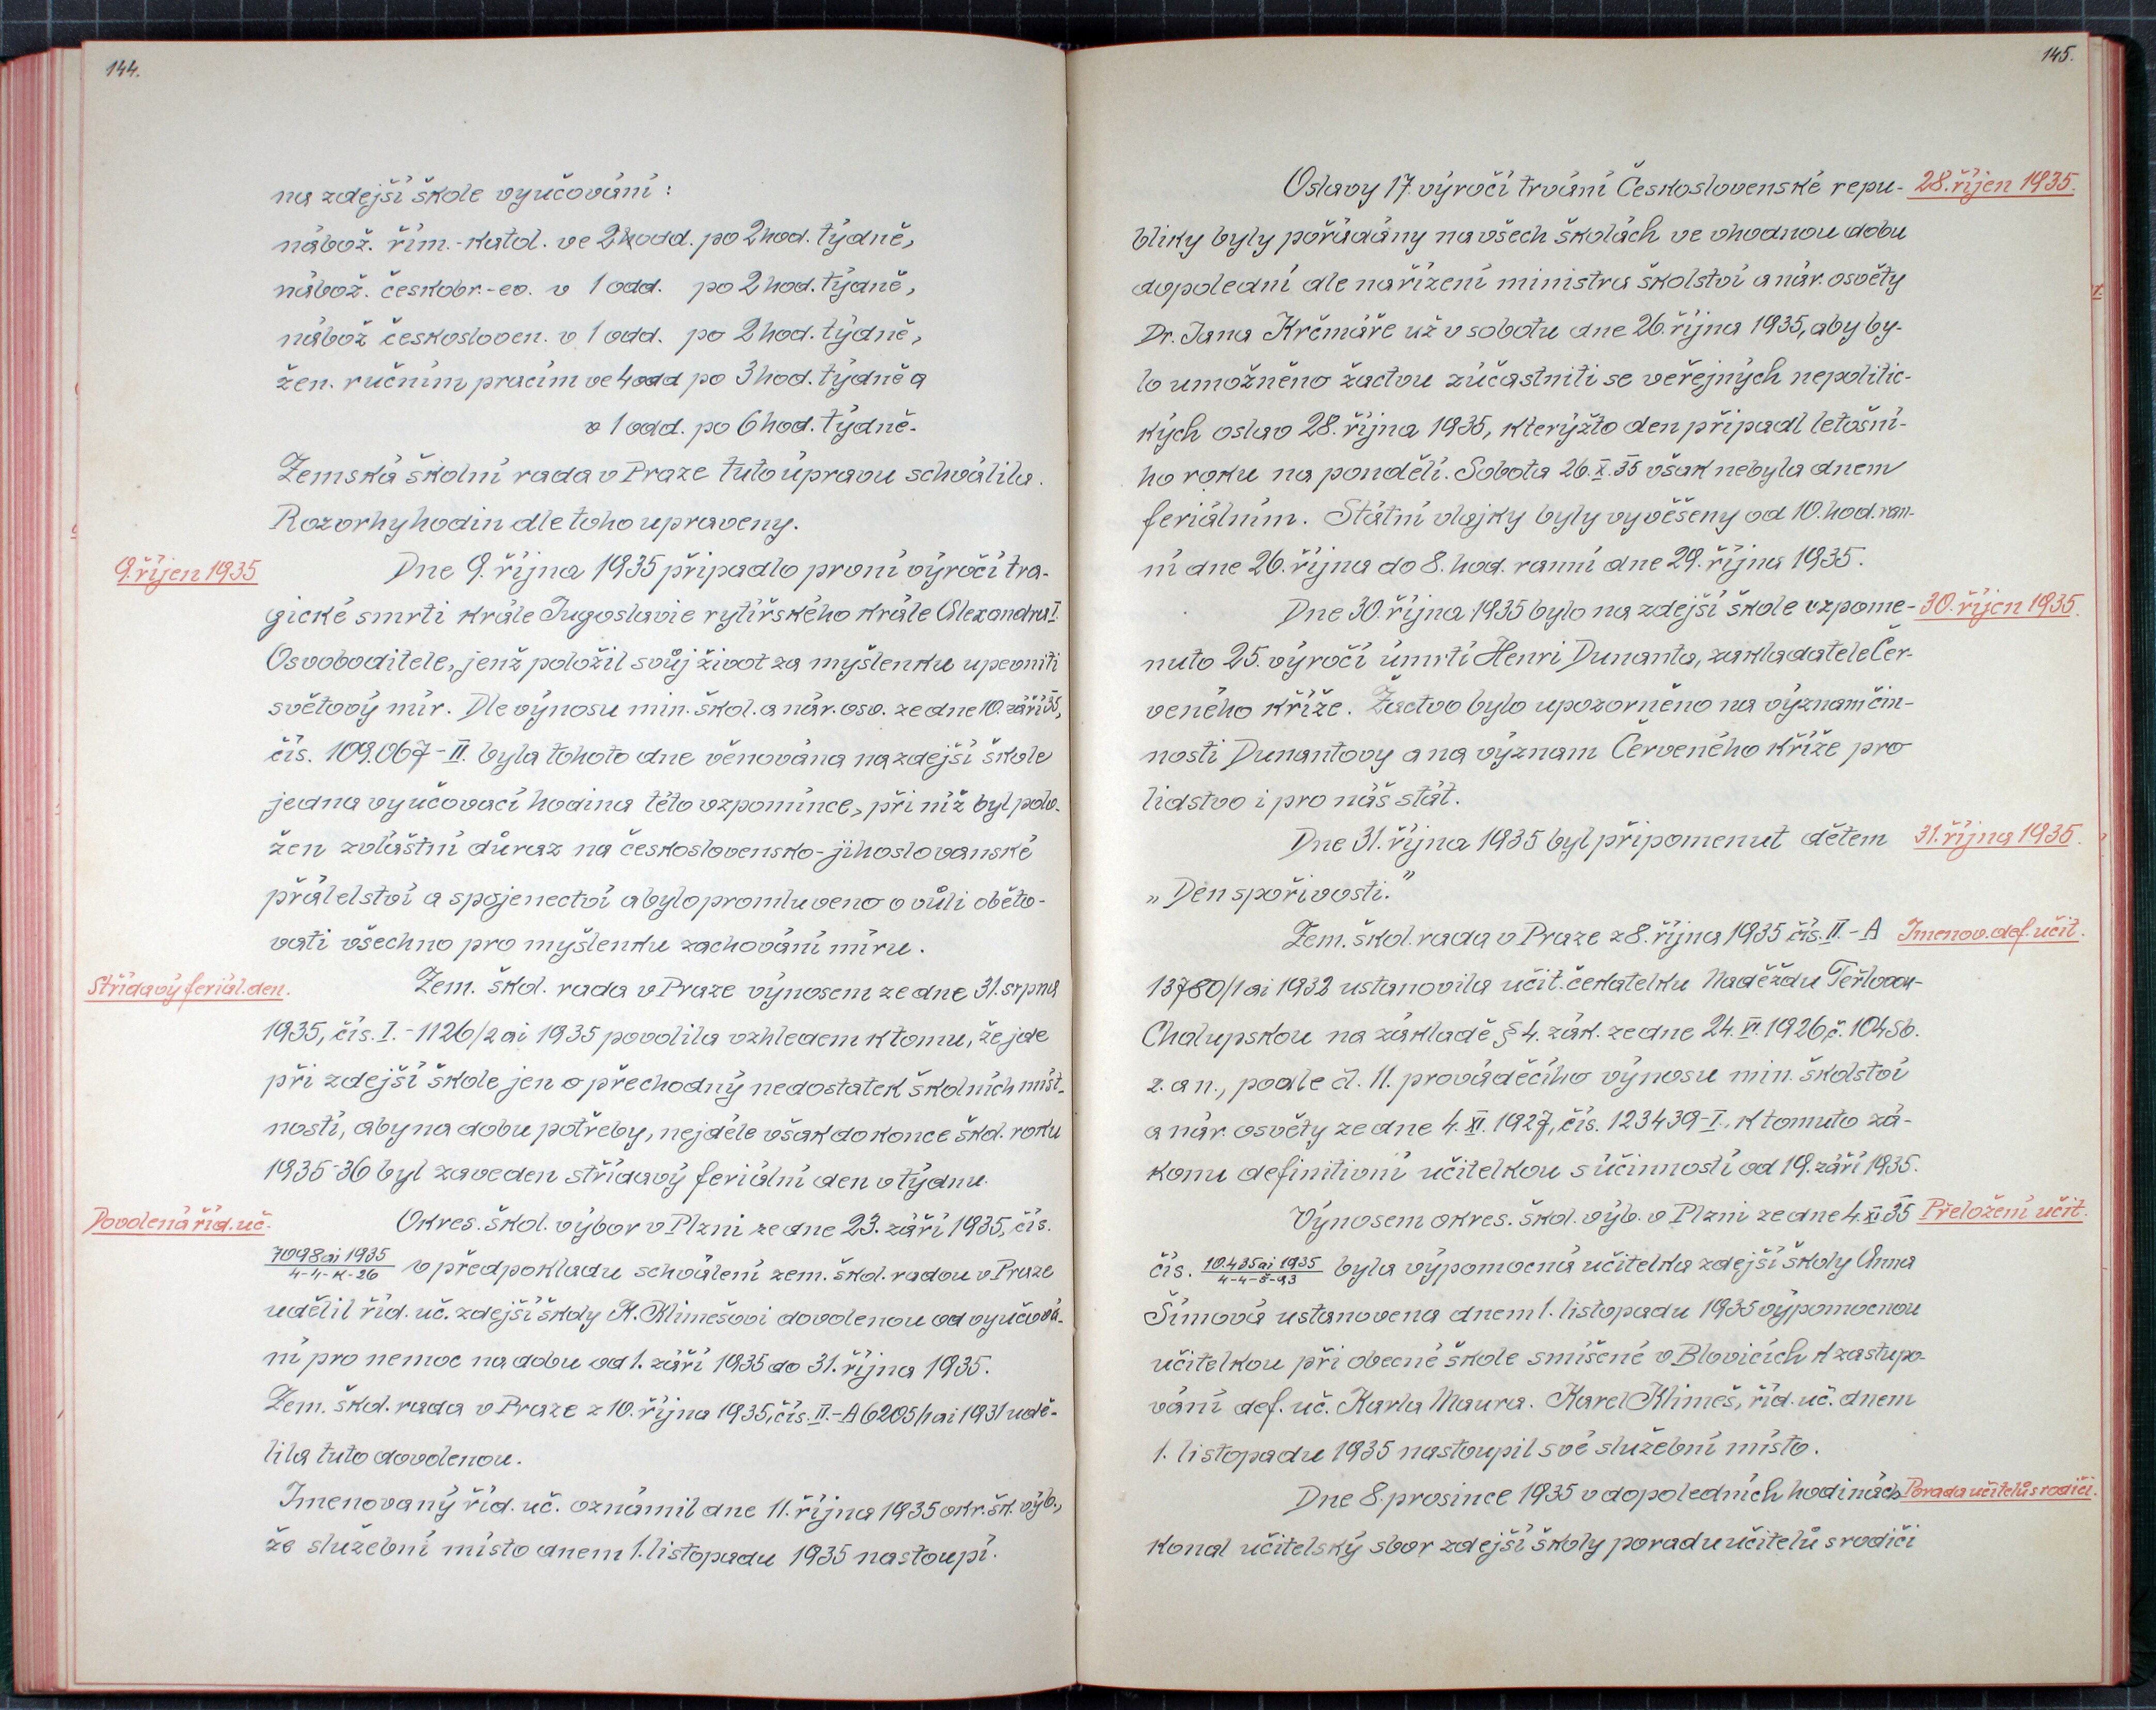 144.
na zdejší škole vyučování:
nábož. řím.-katol. ve 2 odd. po 2 hod. týdně,
nábož. českobr.-ev. v 1 odd. po 2 hod. týdně,
nábož českosloven. v 1 odd. po 2 hod. týdně,
žen. ručním pracím ve 4 odd po 3 hod. týdně a
v 1 odd. po 6 hod. týdně.
Zemská školní rada v Praze tuto úpravu schválila.
Rozvrhy hodin dle toho upraveny.
9. říjen 1935
Dne 9. října 1935 připadlo první výročí tra-
gické smrti krále Jugoslavie rytířského krále Alexandra I.
Osvoboditele, jenž položil svůj život za myšlenku upevniti
světový mír. Dle výnosu min. škol. a nár. osv. ze dne 10. září 35,
čís. 109.067-II. byla tohoto dne věnována na zdejší škole
jedna vyučovací hodina této vzpomínce, při níž byl polo-
žen zvláštní důraz na československo-jihoslovanské
přátelství a spojenectví a bylo promluveno o vůli oběto-
vati všechno pro myšlenku zachování míru.
Střídavý feriál. den.
Zem. škol. rada v Praze výnosem ze dne 31. srpna
1935, čís. I.-1126/2 ai 1935 povolila vzhledem k tomu, že jde
při zdejší škole jen o přechodný nedostatek školních míst-
ností, aby na dobu potřeby, nejdéle však do konce škol. roku
1935-36 byl zaveden střídavý feriální den v týdnu.
Dovolená říd. uč.
Okres. škol. výbor v Plzni ze dne 23. září 1935, čís.
7098 ai 1935
4-4-K-26 v předpokladu schválení zem. škol. radou v Praze
udělil říd. uč. zdejší školy K. Klimešovi dovolenou od vyučová-
ní pro nemoc na dobu od 1. září 1935 do 31. října 1935.
Zem. škol. rada v Praze z 10. října 1935, čís. II.-A 6205/1 ai 1931 udě-
lila tuto dovolenou.
Jmenovaný říd. uč. oznámil dne 11. října 1935 okr. šk. výb.,
že služební místo dnem 1. listopadu 1935 nastoupí.
145.
Oslavy 17. výročí trvání Československé repu-
28. říjen 1935.
bliky byly pořádány na všech školách ve vhodnou dobu
dopolední dle nařízení ministra školství a nár. osvěty
Dr. Jana Krčmáře už v sobotu dne 26. října 1935, aby by-
lo umožněno žactvu zúčastniti se veřejných nepolitic-
kých oslav 28. října 1935, kterýžto den připadl letošní-
ho roku na pondělí. Sobota 26. X. 35 však nebyla dnem
feriálním. Státní vlajky byly vyvěšeny od 10. hod. ran-
ní dne 26. října do 8. hod. ranní dne 29. října 1935.
Dne 30. října 1935 bylo na zdejší škole vzpome-
30. říjen 1935.
nuto 25. výročí úmrtí Henri Dunanta, zakladatele Čer-
veného kříže. Žactvo bylo upozorněno na význam čin-
nosti Dunantovy a na význam Červeného kříže pro
lidstvo i pro náš stát.
Dne 31. října 1935 byl připomenut dětem
31. října 1935.
„Den spořivosti.”
Zem. škol. rada v Praze z 8. října 1935 čís. II.-A
Jmenov. def. učit.
13780/1 ai 1932 ustanovila učit. čekatelku Naděždu
Chalupskou na základě § 4. zák. ze dne 24. VI. 1926, č. 104 Sb.
z. a n., podle čl. 11. prováděcího výnosu min. školství
a nár. osvěty ze dne 4. XI. 1927, čís. 123439-I., k tomuto zá-
konu definitivní učitelkou s účinností od 19. září 1935.
Výnosem okres. škol. výb. v Plzni ze dne 4. XI 35
Přeložení učit.
čís. 10.435 ai 1935
4-4-Š-93 byla výpomocná učitelka zdejší školy Anna
Šímová ustanovena dnem 1. listopadu 1935 výpomocnou
učitelkou při obecné škole smíšené v Blovicích k zastupo-
vání def. uč. Karla Maura. Karel Klimeš, říd. uč. dnem
1. listopadu 1935 nastoupil své služební místo.
Dne 8. prosince 1935 v dopoledních hodinách
Porada učitelů s rodiči.
konal učitelský sbor zdejší školy poradu učitelů s rodiči